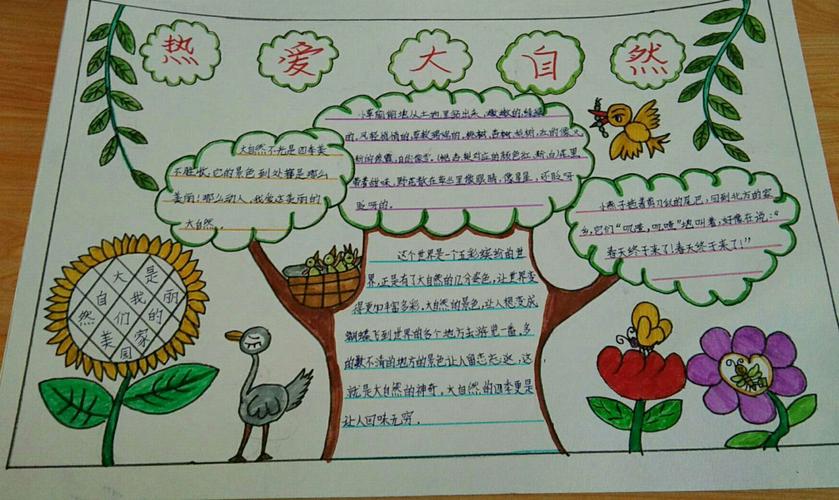 热爱大自然
大自然不光是四季美
不胜收,它的景色到处都是那么
美丽!那么动人,我爱这美丽的
大自然。
小草偷偷地从土地里钻出来,嫩嫩的绿绿
的,风轻悄悄的,草软绵绵的,桃树,杏树,梨树,红的像火
粉的像霞,白的像雪。(桃杏梨对应的颜色红,粉,白)花里
带着甜味,野花散在草丛里像眼睛,像星星,还眨呀
眨呀的。
小燕子拖着剪刀似的尾巴,回到北方的家
乡,它们“叽喳,叽喳”地叫着,好像在说:“
春天终于来了!春天终于来了!”
这个世界是一个五彩缤纷的世
界,正是有了大自然的几分姿色,让世界变
得更加丰富多彩,大自然的景色,让人想变成
蝴蝶飞到世界的各个地方去游览一番,多
的数不清的地方的景色让人留恋忘返,这
就是大自然的神奇,大自然的四季更是
让人回味无穷。
大 是
自 我 丽
然 们 的
美 国 家